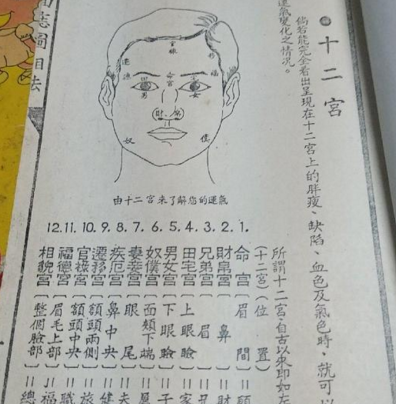 十二宮
倘若能完全看出呈現在十二宮上的胖瘦、缺陷、血色及氣色時、就可
運氣變化之情況。
官祿
命宮
男
奴
僕
由十二宮來了解您的運氣
所謂十二宮、自古以來即如左
(十二宮)(位置)
1. 命宮〔眉間〕=願
2. 財帛宮〔鼻〕=財
3. 兄弟宮〔眉〕=
4. 田宅宮〔上眼瞼〕=家
5. 男女宮〔下眼瞼〕=子
6. 奴僕宮〔面頰下端〕=
7. 妻妾宮〔眼尾〕=夫
8. 疾厄宮〔鼻中央〕=健
9. 遷移宮〔額頭兩側〕=旅
10. 官祿宮〔額頭中央〕=職
11. 福德宮〔眉毛上部〕=福
12. 相貌宮〔整個臉部〕=總